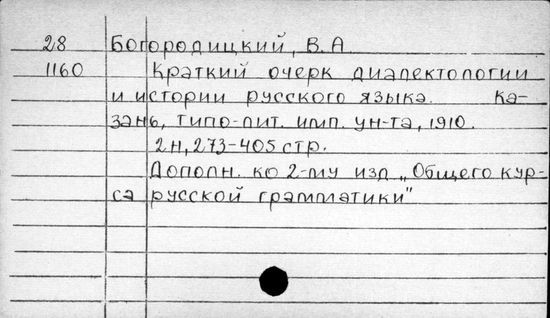 28 Богородицкий, В. А.
1160 Краткий очерк диалектологии
и истории русского языка. Ка-
зань, типо-лит. имп. ун-та, 1910.
2н, 273-405 стр.
Дополн. ко 2-му изд „Общего кур-
са русской грамматики"